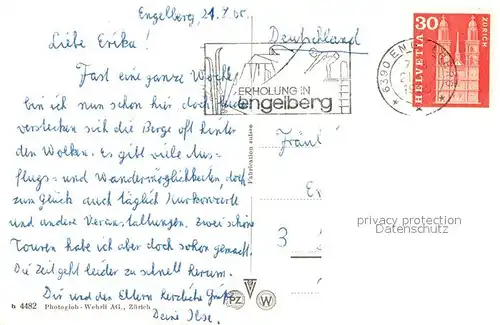 Engelberg, 21.7.65.
Liebe Erika!
Fast eine ganze Woche
bin ich nun schon hier doch leider
verstecken sich die Berge oft hinter
den Wolken. Es gibt viele Aus-
flugs- und Wandermöglichkeiten, doch
zum Glück auch täglich Kurkonzerte
und andere Veranstaltungen. Zwei schöne
Touren habe ich aber doch schon gemacht.
Die Zeit geht leider zu schnell herum.
Dir und den Eltern herzliche Grüße
Deine Ilse.
b 4482 Photoglob-Wehrli AG., Zürich
Fabrication suisse
PZ W
Deutschland
ERHOLUNG IN
engelberg
6390 ENGELBERG
30
HELVETIA
ZÜRICH
Fräul
E
3
privacy protection
Datenschutz